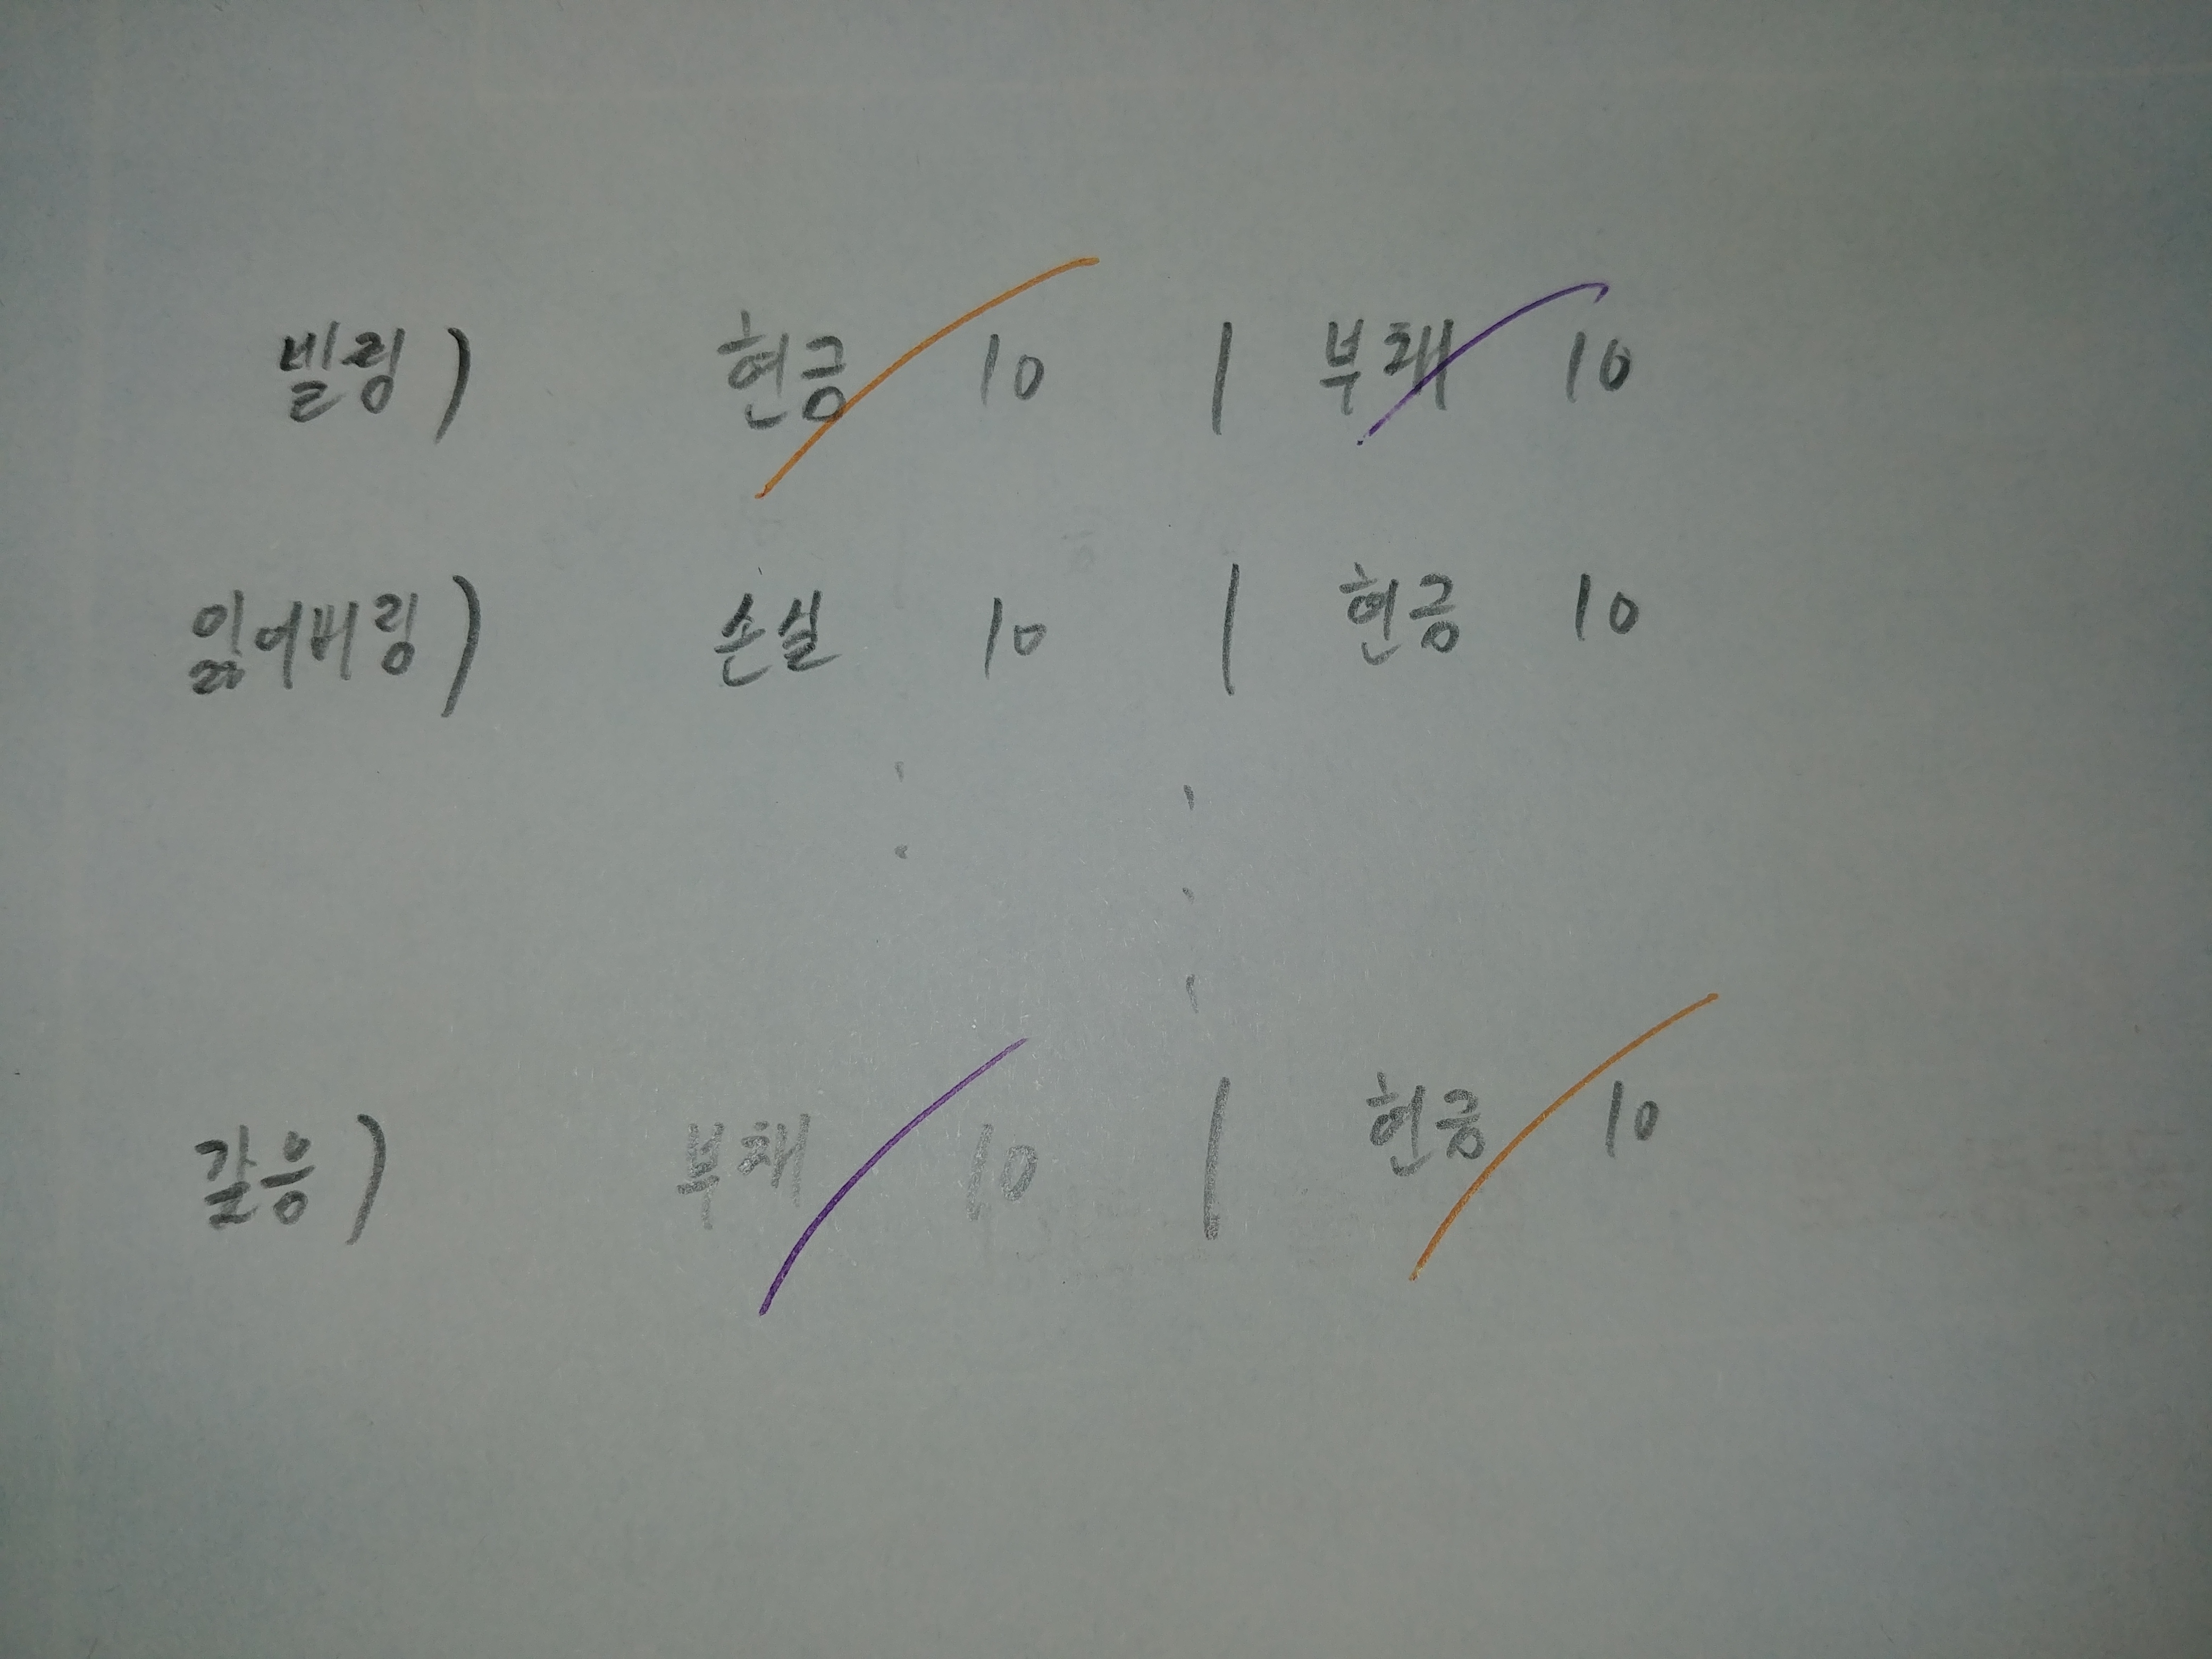 빌링) 현금 10 | 부채 10
잃어버링) 손실 10 | 현금 10
갚응) 부채 10 | 현금 10